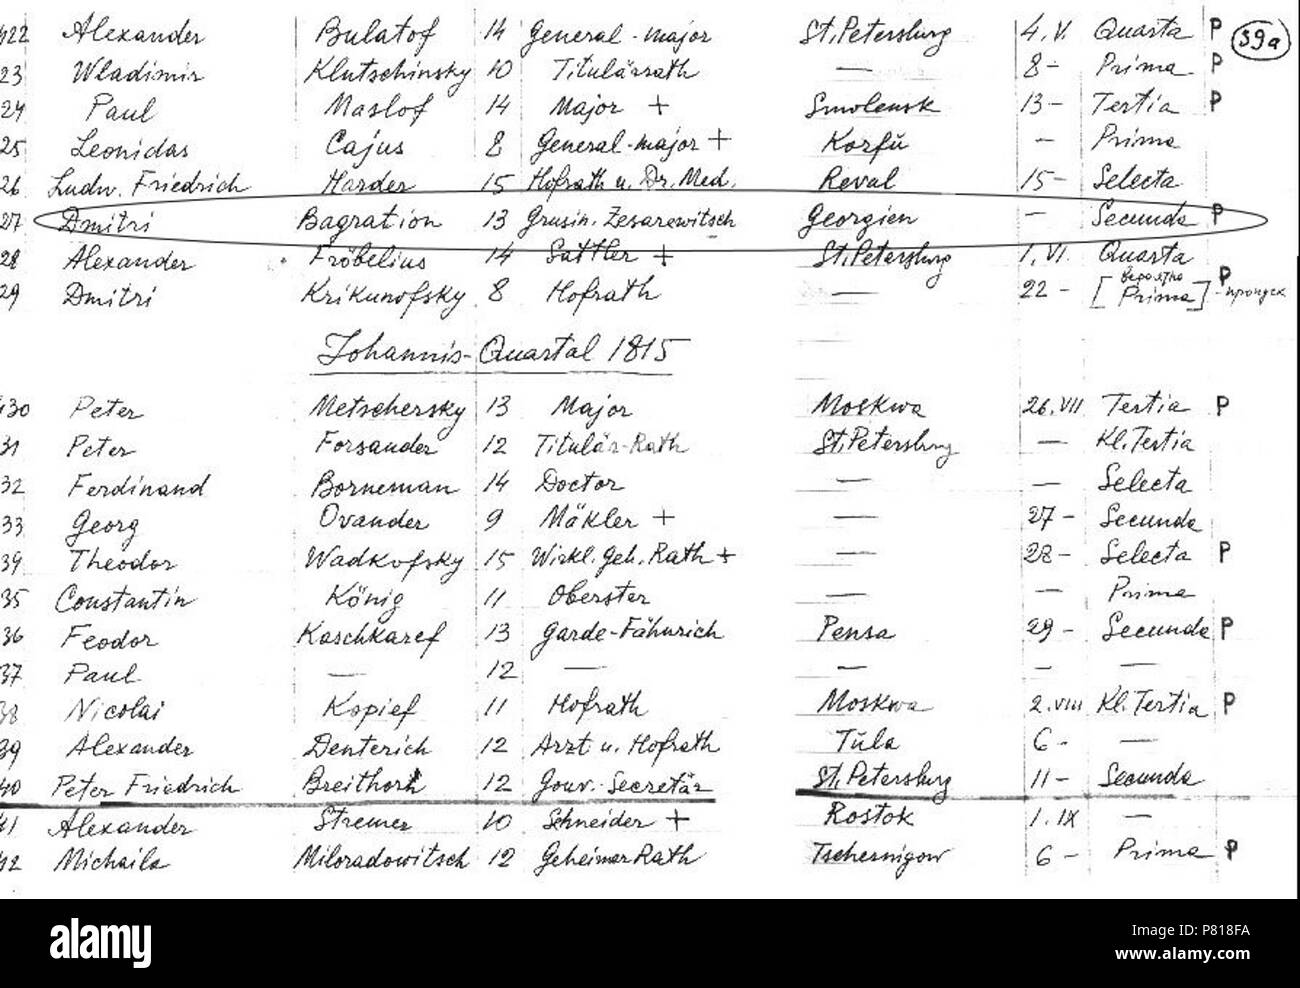 422 Alexander Bulatof 14 General-major St. Petersburg 4. V. Quarta P 59a
23 Wladimir Klutschinsky 10 Titulärrath — 8 - Prima P
24 Paul Maslof 14 Major + Smolensk 13 - Tertia P
25 Leonidas Cajus 8 General-major + Korfŭ — Prima
26 Ludw. Friedrich Harder 15 Hofrath u. Dr. Med. Reval 15 - Selecta
27 Dmitri Bagration 13 Grusin. Zesarewitsch Georgien — Secunda P
28 Alexander Fröbelius 14 Sattler + St. Petersburg 1. VI. Quarta
29 Dmitri Krikunofsky 8 Hofrath — 22 - [вероятно Prima] P
Johannis-Quartal 1815
430 Peter Metschersky 13 Major Moskwa 26. VII Tertia P
31 Peter Forsander 12 Titulär-Rath St. Petersburg — Kl. Tertia
32 Ferdinand Borneman 14 Doctor — — Selecta
33 Georg Ovander 9 Mäkler + — 27 - Secunda
39 Theodor Wadkofsky 15 Wirkl. Geh. Rath + — 28 - Selecta P
35 Constantin König 11 Oberster — — Prima
36 Feodor Kaschkaref 13 Garde-Fähnrich Pensa 29 - Secunda P
37 Paul — 12 — — — —
38 Nicolai Kopief 11 Hofrath Moskwa 2. VIII Kl. Tertia P
39 Alexander Denterich 12 Arzt u. Hofrath Tŭla 6 - —
40 Peter Friedrich Breithorh 12 Gouv.-Secretär St. Petersburg 11 - Secunda
41 Alexander Stremer 10 Schneider + Rostok 1. IX —
42 Michaila Miloradowitsch 12 Geheimer Rath Tschernigow 6 - Prima P
alamy
Image ID: P818FA
www.alamy.com